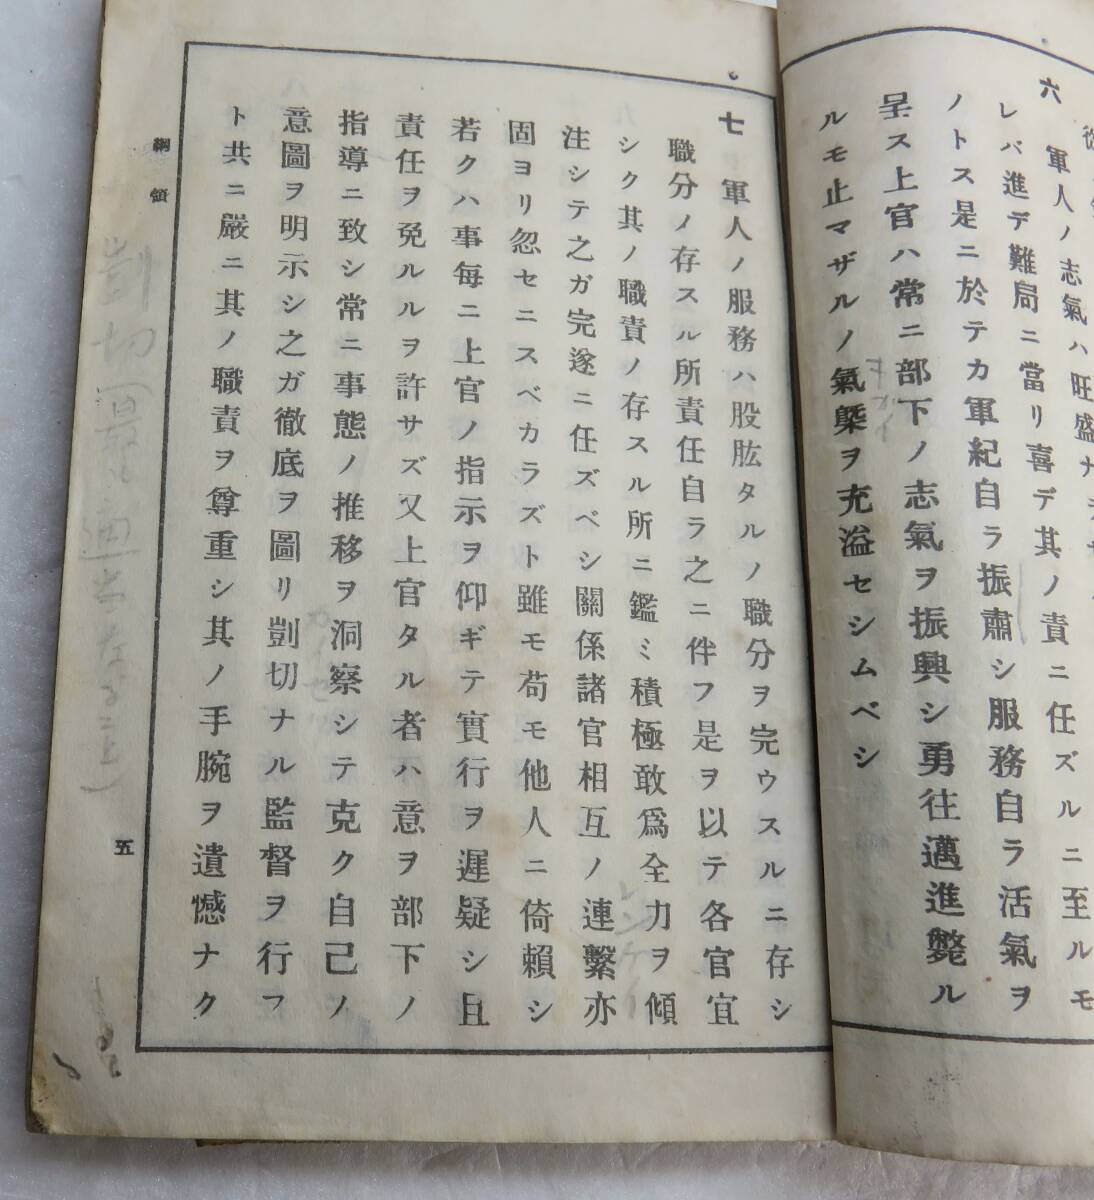 六 軍人ノ志氣ハ旺盛ナ
レバ進デ難局ニ當リ喜デ其ノ責ニ任ズルニ至ルモ
ノトス是ニ於テカ軍紀自ラ振肅シ服務自ラ活氣ヲ
呈ス上官ハ常ニ部下ノ志氣ヲ振興シ勇往邁進斃ル
ルモ止マザルノ氣槩ヲ充溢セシムベシ
七 軍人ノ服務ハ股肱タルノ職分ヲ完ウスルニ存シ
職分ノ存スル所責任自ラ之ニ伴フ是ヲ以テ各官宜
シク其ノ職責ノ存スル所ニ鑑ミ積極敢爲全力ヲ傾
注シテ之ガ完遂ニ任ズベシ關係諸官相互ノ連繫亦
固ヨリ忽セニスベカラズト雖モ苟モ他人ニ倚賴シ
若クハ事每ニ上官ノ指示ヲ仰ギテ實行ヲ遲疑シ且
責任ヲ免ルルヲ許サズ又上官タル者ハ意ヲ部下ノ
指導ニ致シ常ニ事態ノ推移ヲ洞察シテ克ク自己ノ
意圖ヲ明示シ之ガ徹底ヲ圖リ剴切ナル監督ヲ行フ
ト共ニ嚴ニ其ノ職責ヲ尊重シ其ノ手腕ヲ遺憾ナク
綱領
五
剴切(最も適当なる